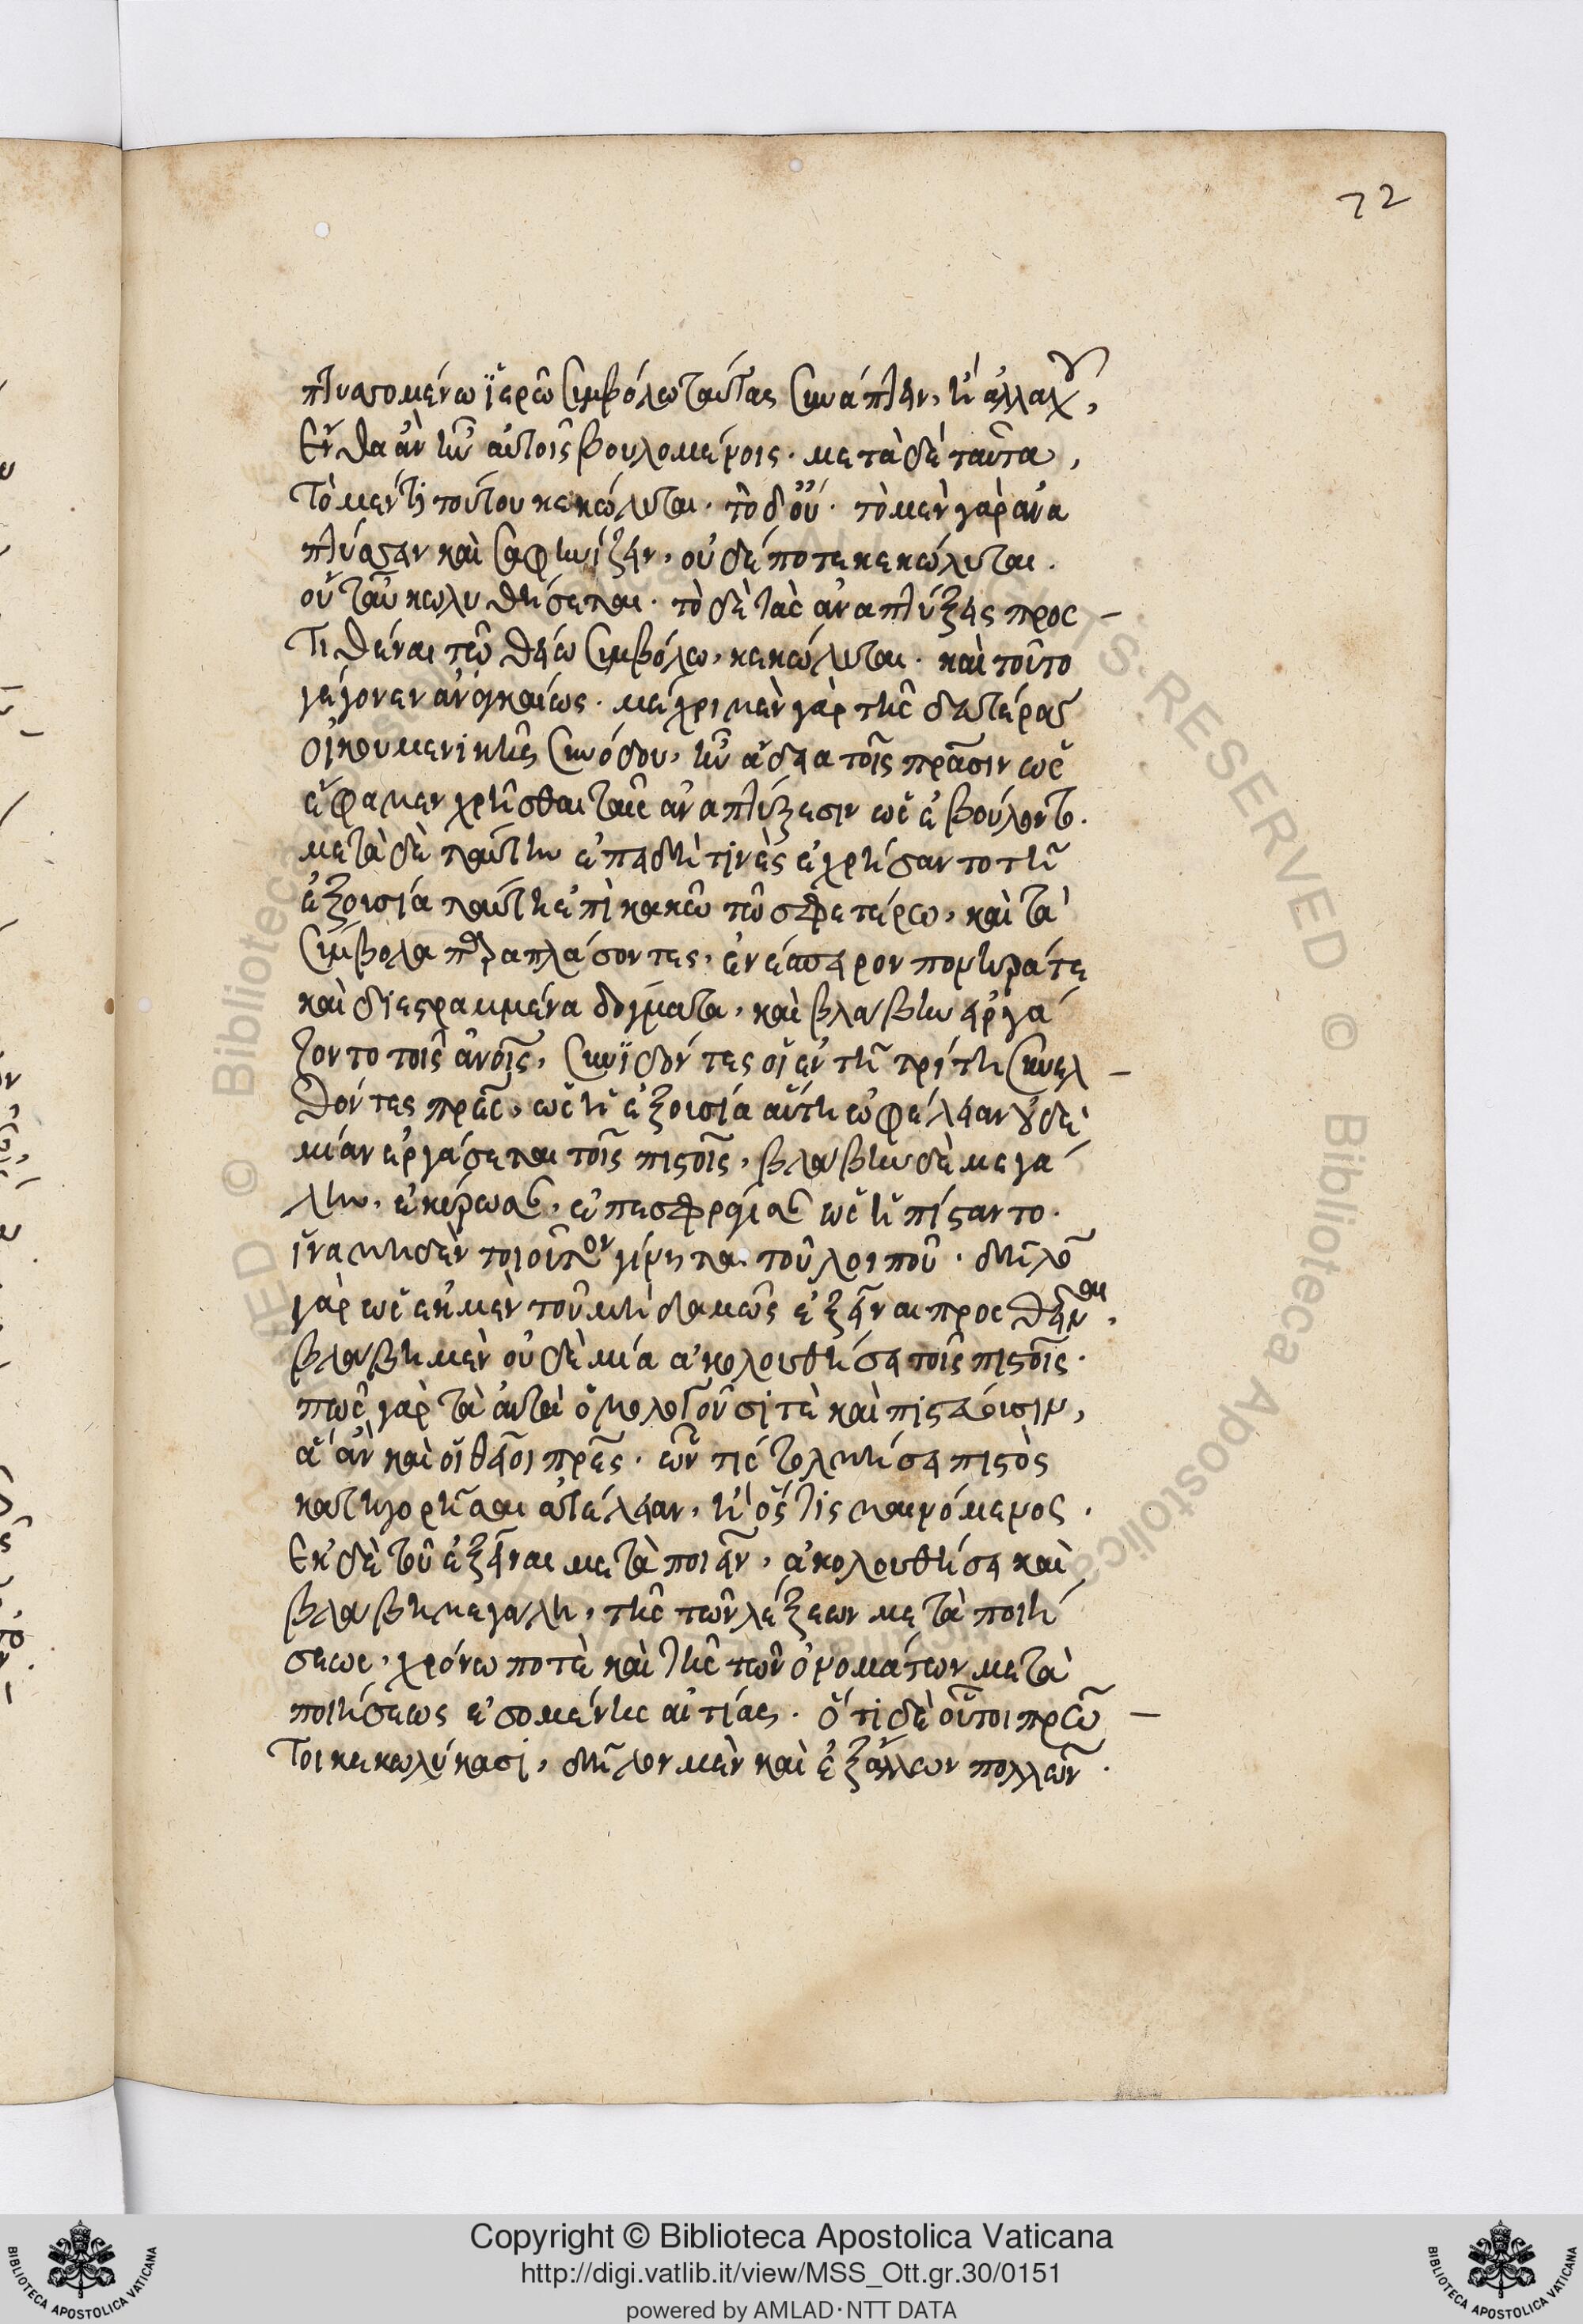 72
πτυσσομένω ϊερῶ συμβόλω ταύτας συνάπτειν, ἢ ἀλλαχοῦ,
ἔνθα ἂν ἦν αὐτοῖς βουλομένοις. μετὰ δὲ ταῦτα,
τὸ μέν τι τούτου κεκώλυται. τὸ δ' οὔ. τὸ μὲν γὰρ ἀνα
πτύσσειν καὶ σαφηνίζειν, οὐδέποτε κεκώλυται.
οὔτ' αὖ κωλυθήσεται. τὸ δὲ τὰς ἀναπτύξεις προσ
τιθέναι τῶ θείω συμβόλω, κεκώλυται. καὶ τοῦτο
γέγονεν ἀναγκαίως. μέχρι μὲν γὰρ τῆς δευτέρας
οἰκουμενικῆς συνόδου, ἦν ἄδεια τοῖς πρᾶσιν ὡς
ἔφαμεν χρῆσθαι ταῖς ἀναπτύξεσιν ὡς ἐβούλοντο.
μετὰ δὲ ταύτην ἐπειδή τινες ἐχρήσαντο τῆ
ἐξουσία ταύτη ἐπὶ κακῶ τῶ σφετέρω, καὶ τὰ
σύμβολα παραπλάσοντες, ἐνέσπειρον πονηρά τε
καὶ διεστραμμένα δόγματα, καὶ βλάβην εἰργά
ζοντο τοῖς ἀνοις, συνϊδόντες οἱ ἐν τῆ τρίτη συνελ
θόντες πρες, ὡς ἡ ἐξουσία αὕτη ὠφέλειαν οὐδε
μίαν ἐργάσεται τοῖς πιστοῖς, βλάβην δὲ μεγά
λην, ἐκέρωσαν, ἐπεσφράγισαν ὡς ἠπίσαντο.
ἵνα μηδὲν τοιοῦτον γίνηται τοῦ λοιποῦ. δῆλον
γὰρ ὡς ἐκ μὲν τοῦ μηδαμῶς ἐξεῖναι προσθεῖναι,
βλάβη μὲν οὐδεμία ἀκολουθήσει τοῖς πιστοῖς.
πῶς γὰρ τὰ αὐτὰ ὁμολογοῦσί τε καὶ πιστεύουσιν,
ἃ ἂν καὶ οἱ θεῖοι πρες. ὧν τίς τολμήσει πιστὸς
κατηγορῆσαι ἀτέλειαν, ἢ ὅστις μαινόμενος.
Ἐκ δὲ τοῦ ἐξεῖναι μεταποιεῖν, ἀκολουθήσει καὶ
βλάβη μεγάλη, τῆς τῶν λέξεων μεταποιή
σεως, χρόνω ποτὲ καὶ τῆς τῶν ὀνομάτων μετα
ποιήσεως ἐσομένης αἰτίας. ὅτι δὲ οὗτοι πρῶ
τοι κεκωλύκασι, δῆλον μὲν καὶ ἐξ ἄλλων πολλῶν.
Copyright © Biblioteca Apostolica Vaticana
http://digi.vatlib.it/view/MSS_Ott.gr.30/0151
powered by AMLAD·NTT DATA